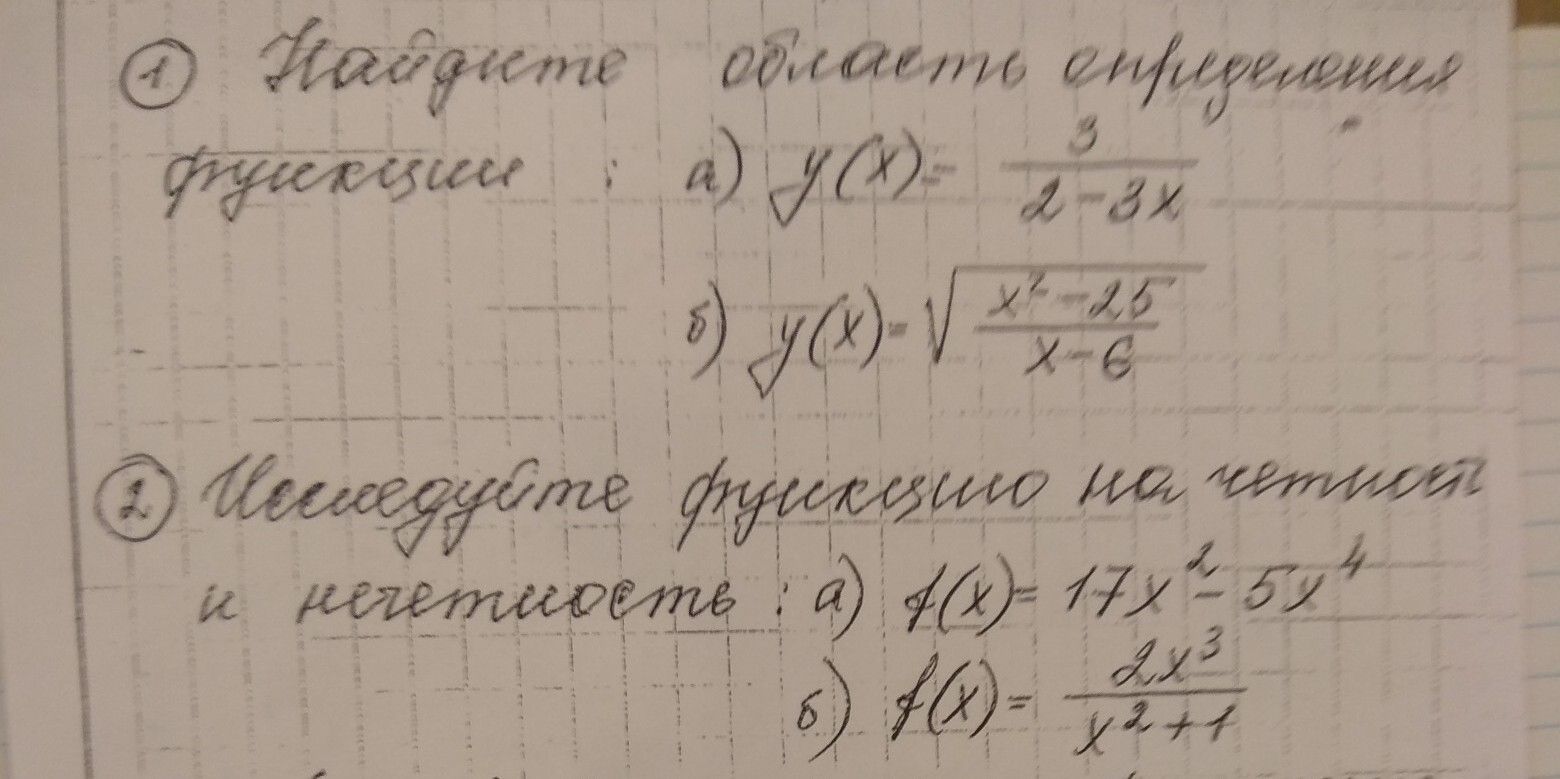 ① Найдите область определения
функции : а) y(x) = 3/(2-3x)
б) y(x) = √((x²-25)/(x-6))
② Исследуйте функцию на четност
и нечетность : а) f(x) = 17x² - 5x⁴
б) f(x) = 2x³/(x²+1)